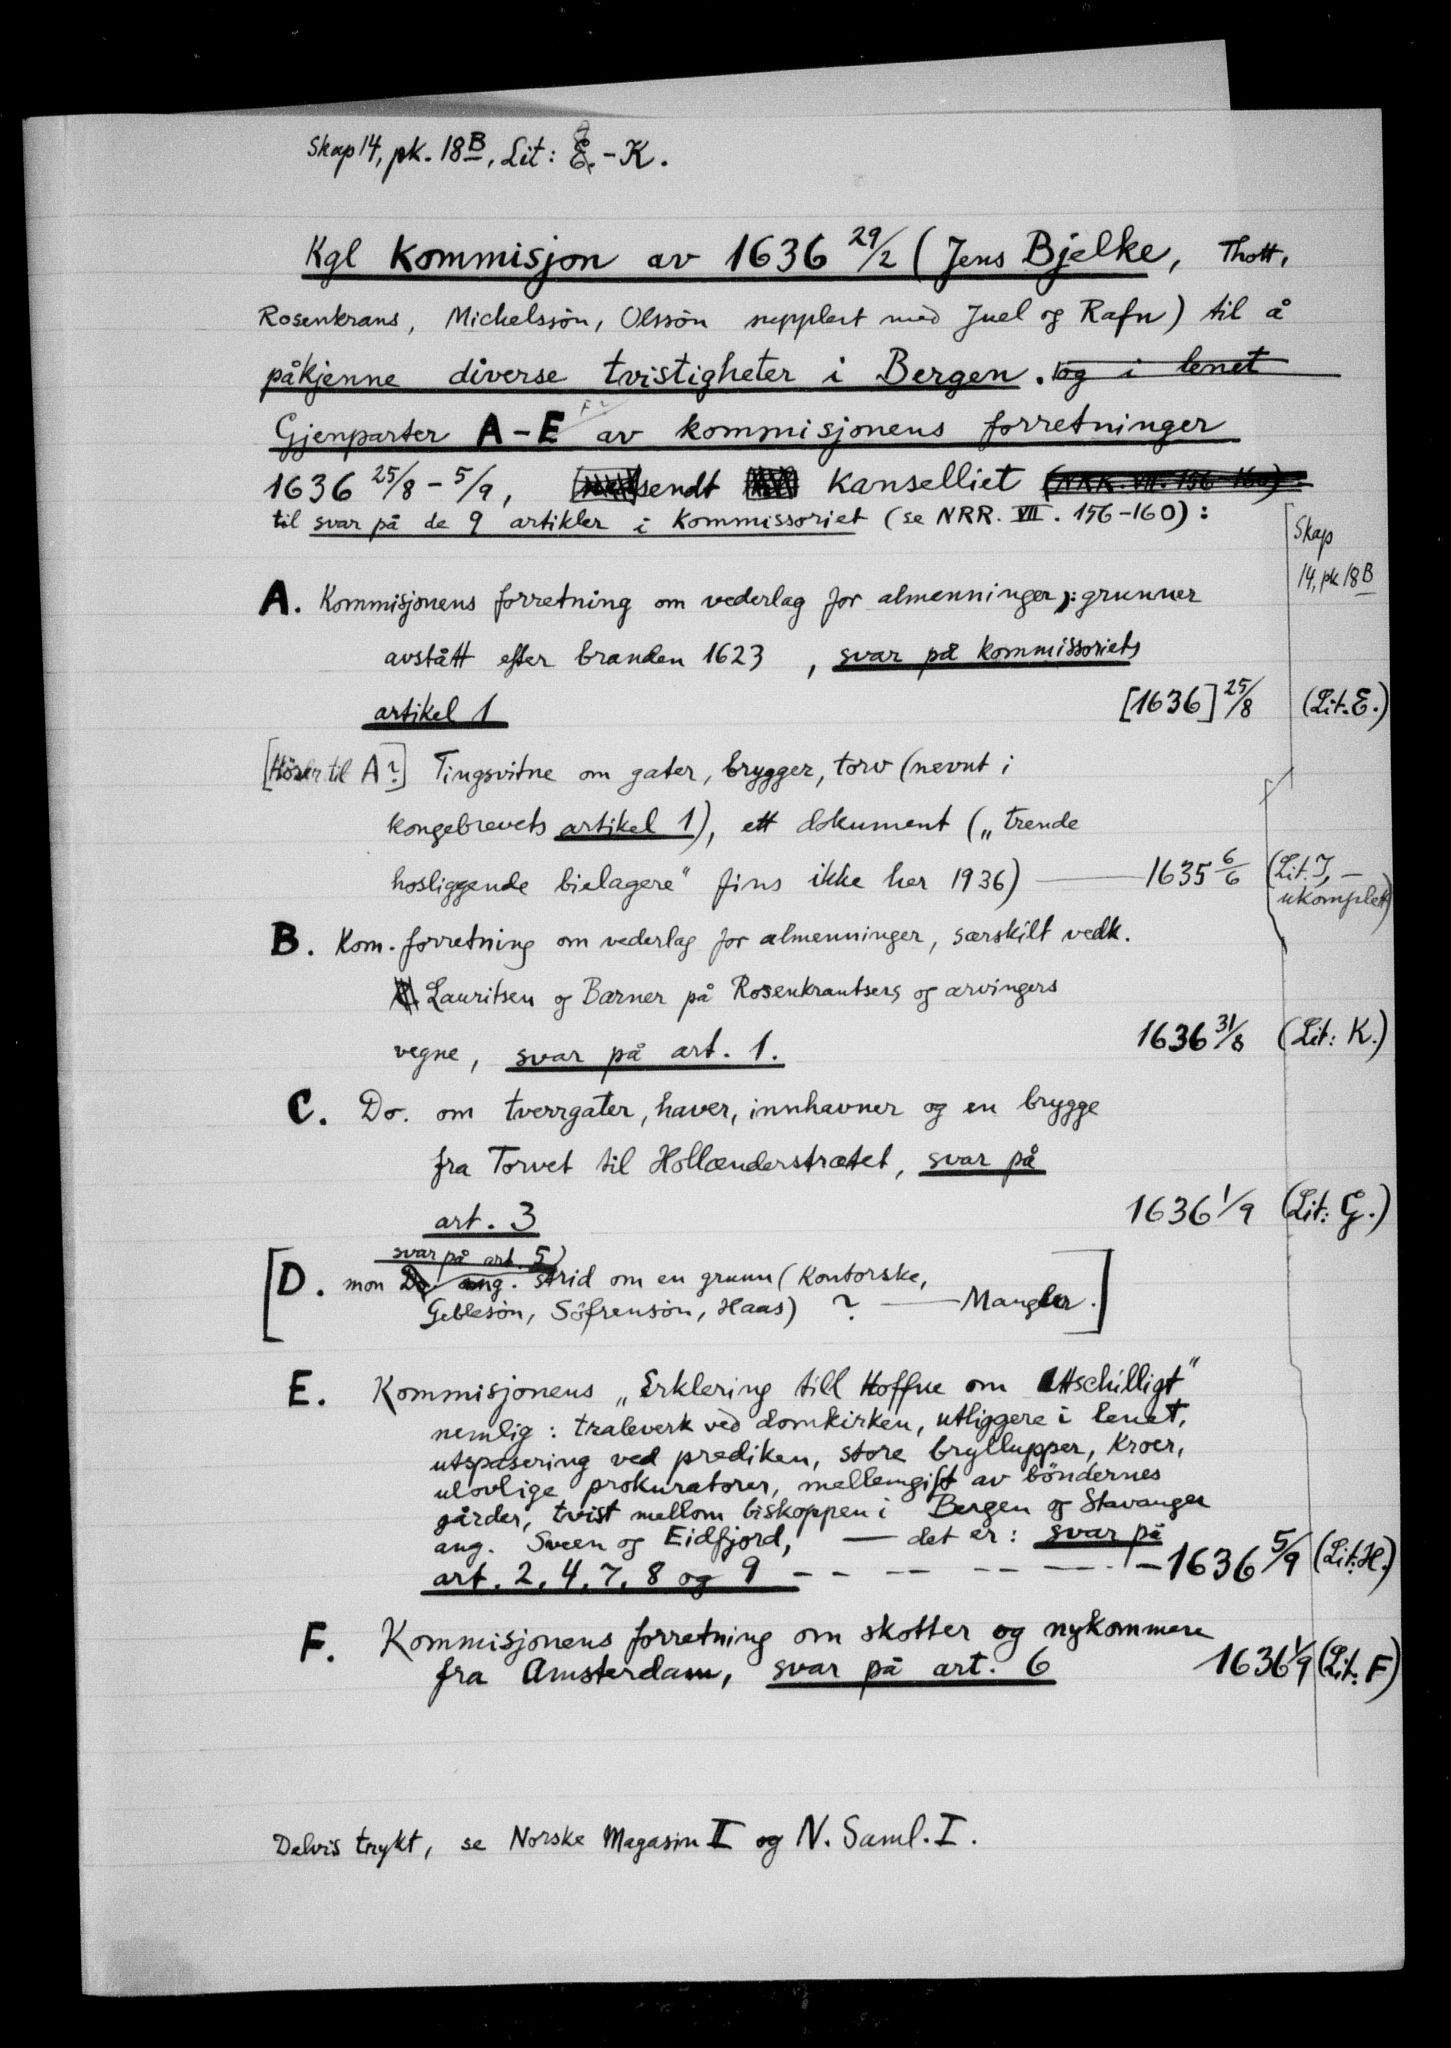 Skap 14, pk. 18B, Lit: E. - K.
Kgl Kommisjon av 1636 29/2 (Jens Bjelke, Thott,
Rosenkrans, Michelssön, Olssön supplert med Juel og Rafn) til å
påkjenne diverse tvistigheter i Bergen. og i lenet
Gjenparter A - E av kommisjonens forretninger
F?
1636 25/8 - 5/9, sendt Kanselliet (NRR. VII. 156-160)
til svar på de 9 artikler i Kommissoriet (se NRR. VII. 156-160):
Skap
14, pk 18B
A. Kommisjonens forretning om vederlag for almenninger ɔ: grunner
avstått efter branden 1623, svar på kommissoriets
artikel 1 [1636] 25/8 (Lit. E.)
[Hörer til A?] Tingsvitne om gater, brygger, torv (nevnt i
kongebrevets artikel 1), ett dokument („trende
hosliggende bielagere" fins ikke her 1936) — 1635 6/6 (Lit. I, —
ukomplett)
B. Kom. forretning om vederlag for almenninger, særskilt vedk.
Lauritsen og Barner på Rosenkrantsers og arvingers
vegne, svar på art. 1. 1636 31/8 (Lit: K.)
C. Do. om tverrgater, haver, innhavner og en brygge
fra Torvet til Hollænderstrætet, svar på
art. 3 1636 1/9 (Lit: G.)
svar på art. 5)
[D. mon Do. ang. strid om en grunn (Kontorske,
Geblesön, Söfrensön, Haas) ? — Mangler.]
E. Kommisjonens „Erklering till Hoffue om Attschilligt"
nemlig: traleverk ved domkirken, utliggere i lenet,
utspasering ved prediken, store bryllupper, kroer,
ulovlige prokuratorer, mellemgift av böndernes
gårder, tvist mellom biskoppen i Bergen og Stavanger
ang. Sveen og Eidfjord, — det er: svar på
art. 2, 4, 7, 8 og 9 - - - - - - - 1636 5/9 (Lit. H.)
F. Kommisjonens forretning om skotter og nykommere
fra Amsterdam, svar på art. 6 1636 1/9 (Lit. F)
Delvis trykt, se Norske Magasin II og N. Saml. I.